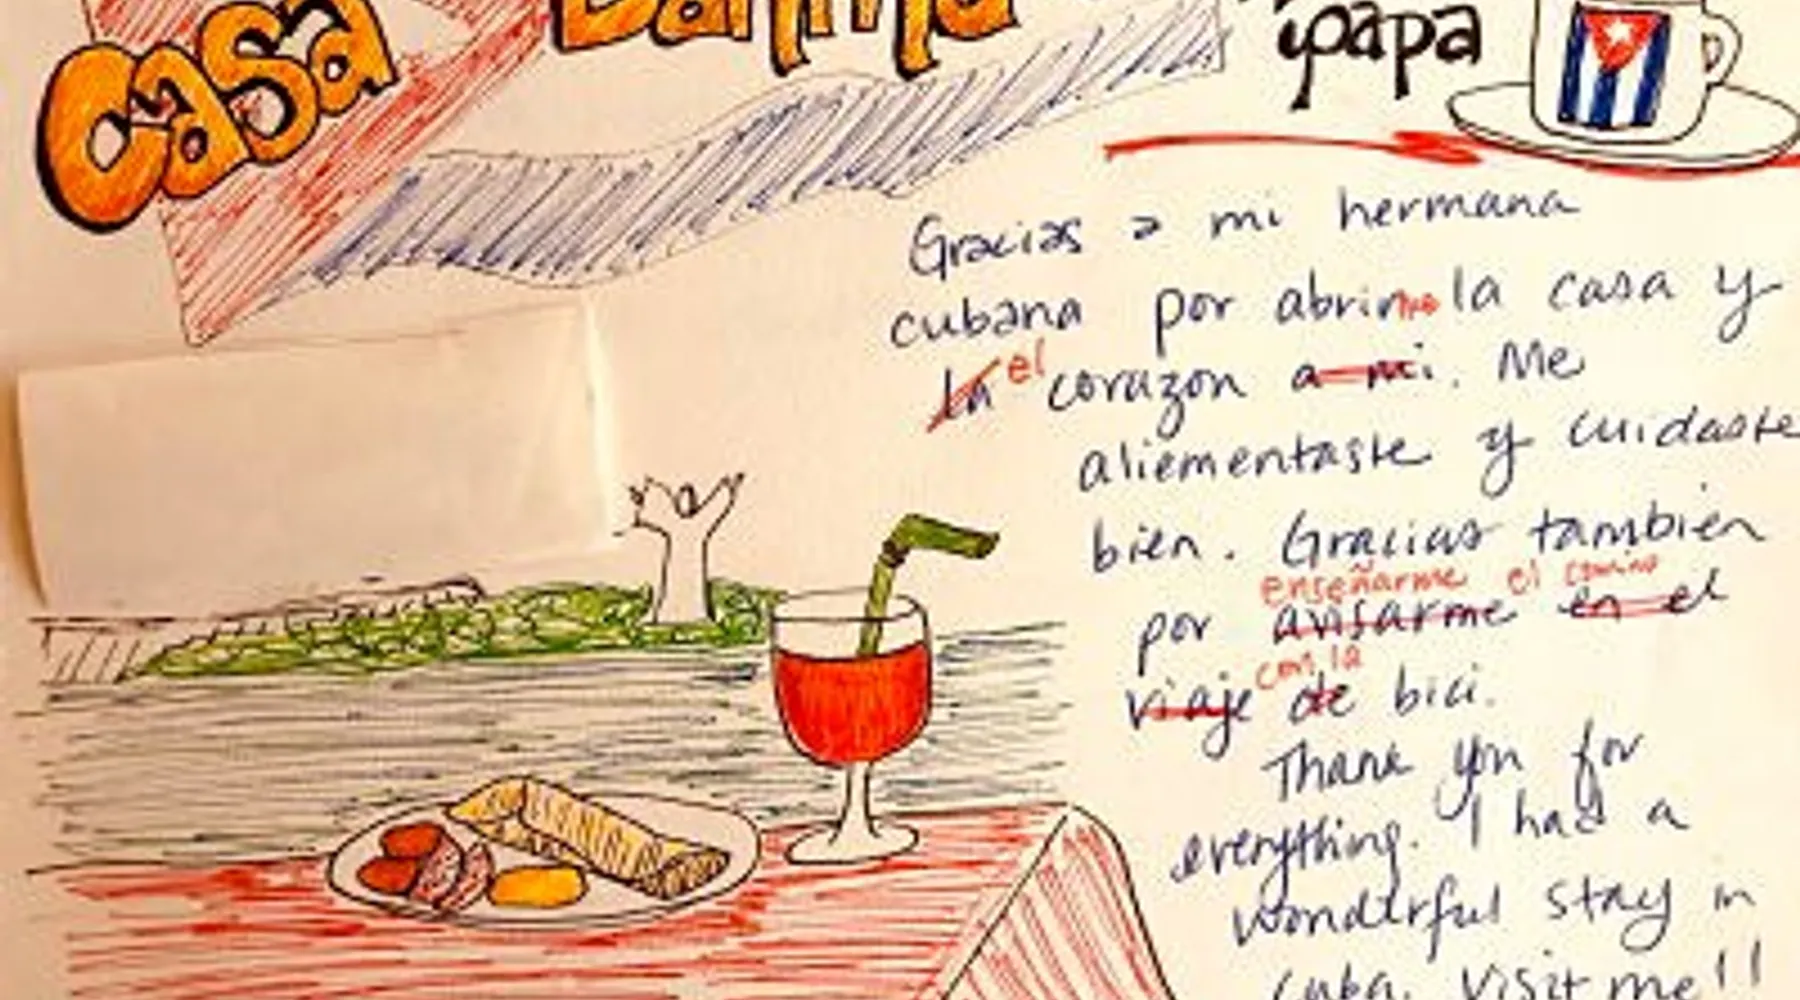 Casa
papa
Gracias a mi hermana
cubana por abrirme la casa y
la el corazon a mi. Me
aliementaste y cuidaste
bien. Gracias también
enseñarme el camino
por avisarme en el
con la
viaje de bici.
Thank you for
everything. I had a
wonderful stay in
Cuba. Visit me!!